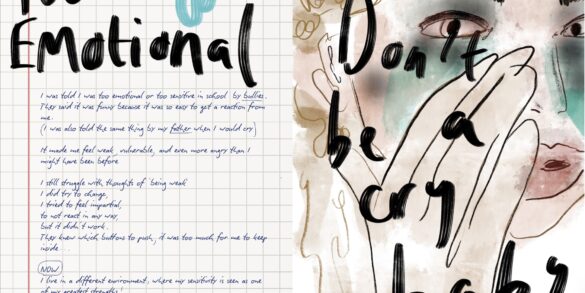 Too
Emotional
I was told I was too emotional or too sensitive in school by bullies.
They said it was funny because it was so easy to get a reaction from
me.
(I was also told the same thing by my father when I would cry)
It made me feel weak, vulnerable, and even more angry than I
might have been before
I still struggle with thoughts of 'being weak'
I did try to change,
I tried to feel impartial,
to not react in any way,
but it didn't work.
They knew which buttons to push, it was too much for me to keep
inside...
NOW
I live in a different environment, where my sensitivity is seen as one
of my greatest strengths!
Don't
be a
cry
baby